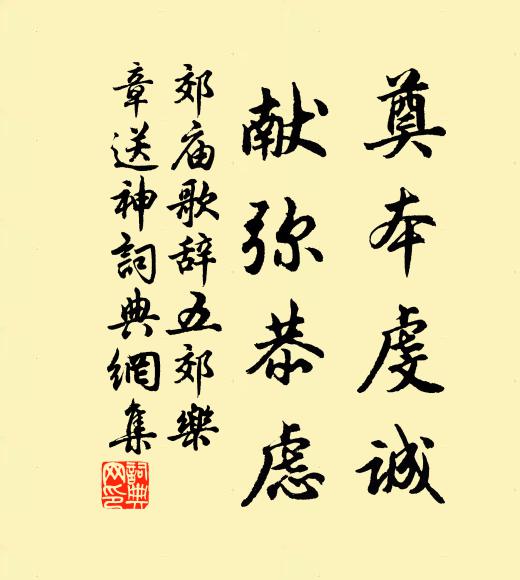 奠本虔诚
献弥恭虑
郊庙歌辞五郊樂
章送神詞典網集
詞典
网印